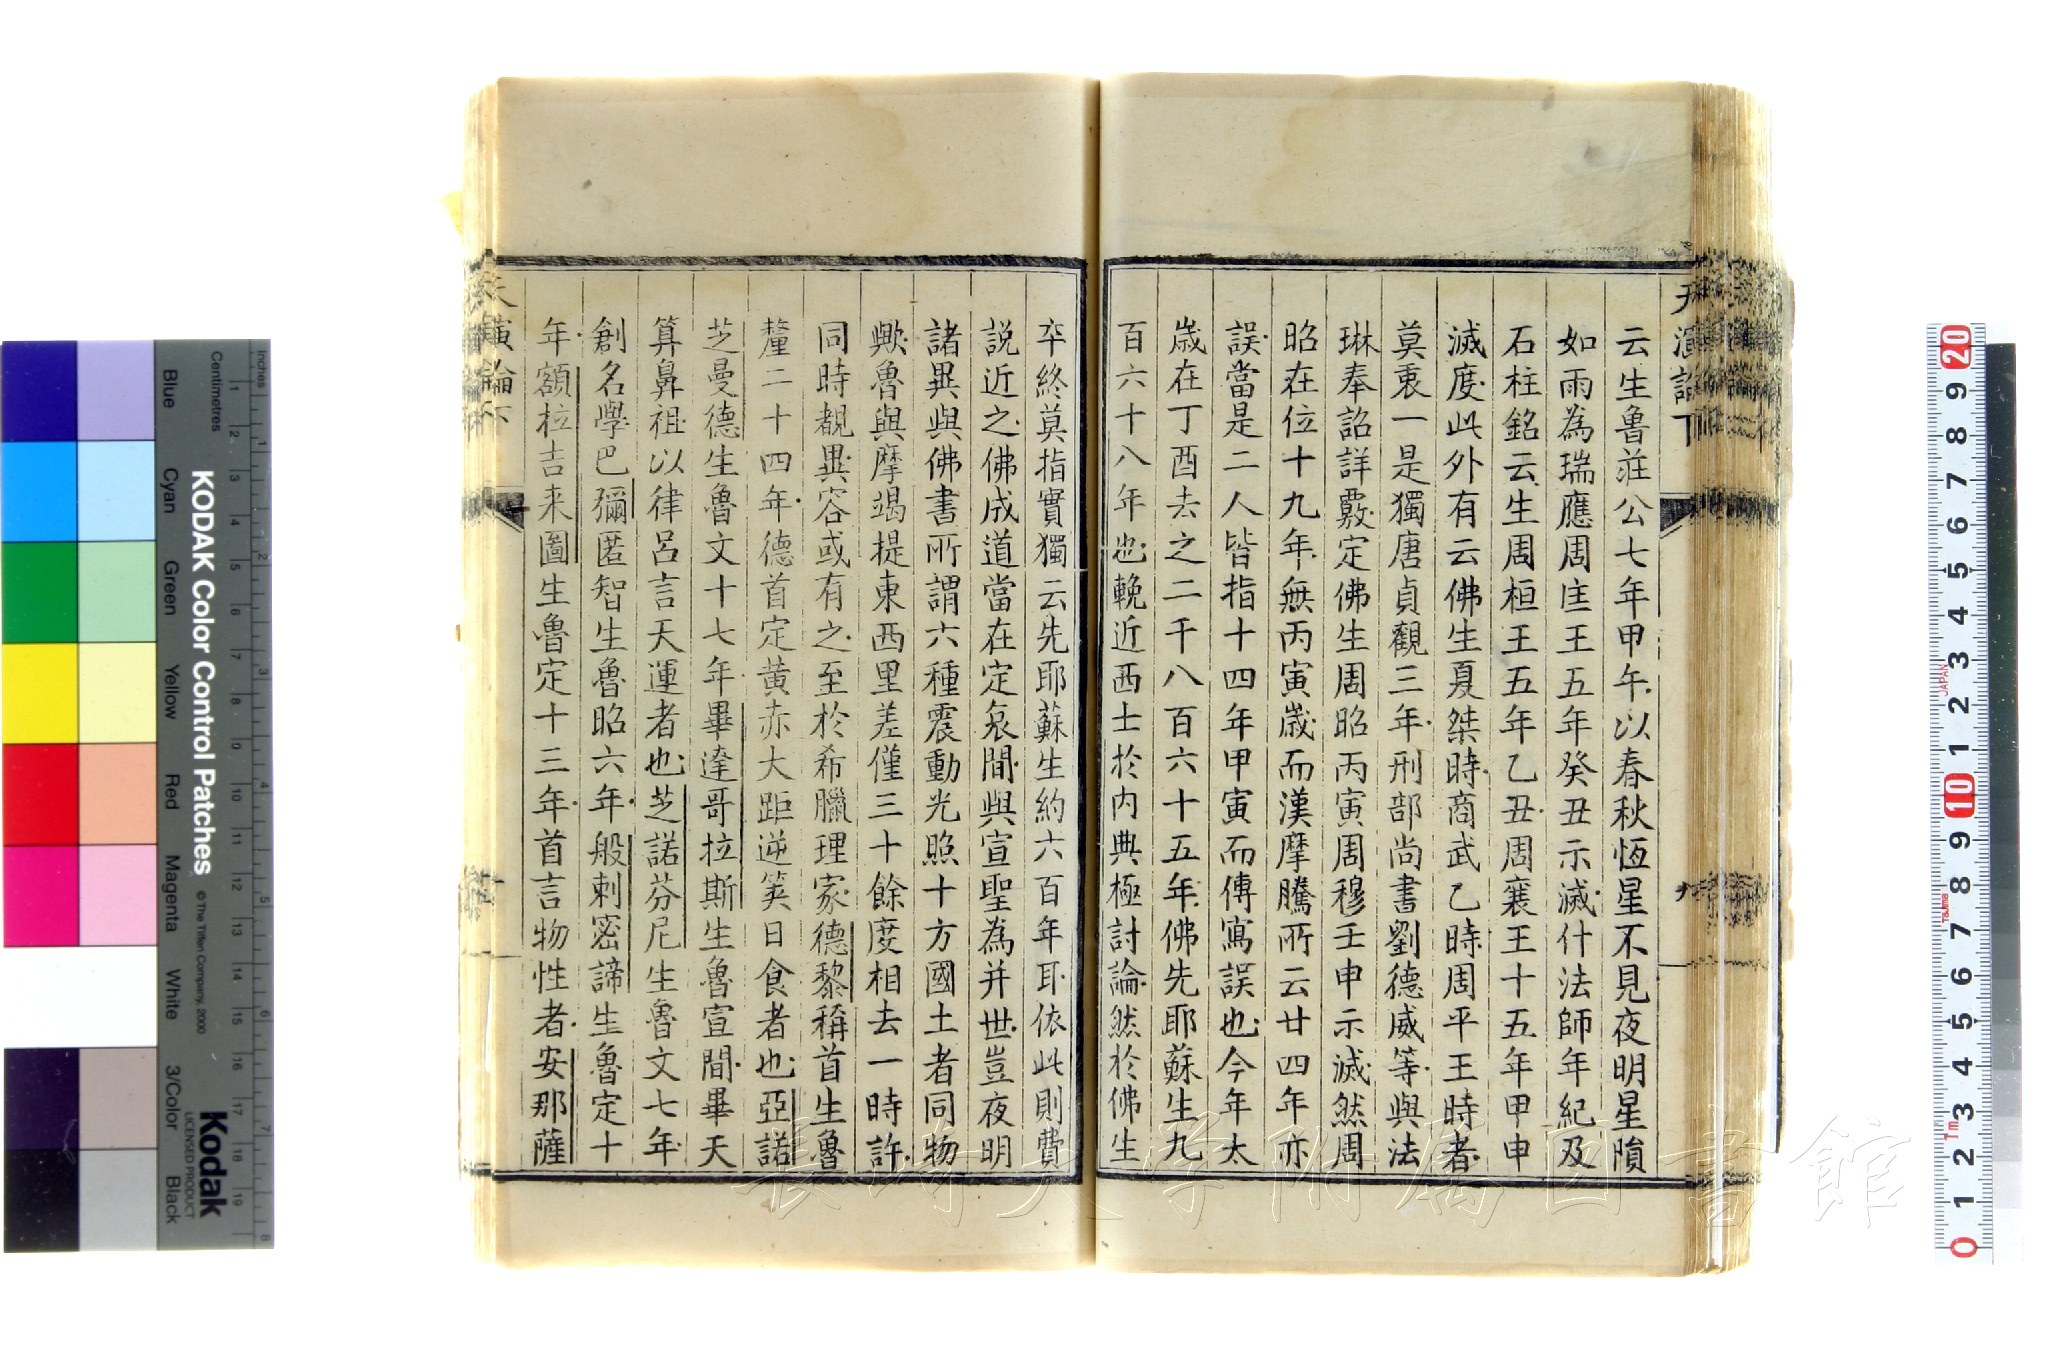 天演論下
九
云生魯莊公七年甲午以春秋恆星不見夜明星隕
如雨為瑞應周匡王五年癸丑示滅什法師年紀及
石柱銘云生周桓王五年乙丑周襄王十五年甲申
滅度此外有云佛生夏桀時商武乙時周平王時者
莫衷一是獨唐貞觀三年刑部尚書劉德威等與法
琳奉詔詳覈定佛生周昭丙寅周穆壬申示滅然周
昭在位十九年無丙寅歲而漢摩騰所云廿四年亦
誤當是二人皆指十四年甲寅而傳寫誤也今年太
歲在丁酉去之二千八百六十五年佛先耶蘇生九
百六十八年也輓近西士於內典極討論然於佛生
卒終莫指實獨云先耶蘇生約六百年耳依此則費
說近之佛成道當在定哀間與宣聖為并世豈夜明
諸異與佛書所謂六種震動光照十方國土者同物
歟魯與摩竭提東西里差僅三十餘度相去一時許
同時覩異容或有之至於希臘理家德黎稱首生魯
釐二十四年德首定黃赤大距逆筭日食者也亞諾
芝曼德生魯文十七年畢達哥拉斯生魯宣間畢天
算鼻祖以律呂言天運者也芝諾芬尼生魯文七年
創名學巴彌匿智生魯昭六年般刺密諦生魯定十
年額拉吉来圖生魯定十三年首言物性者安那薩
天演論下
KODAK Color Control Patches
© The Tiffen Company, 2000
Kodak
LICENSED PRODUCT
Inches
Centimetres
Blue
Cyan
Green
Yellow
Red
Magenta
White
3/Color
Black
長崎大学附属図書館
JAPAN